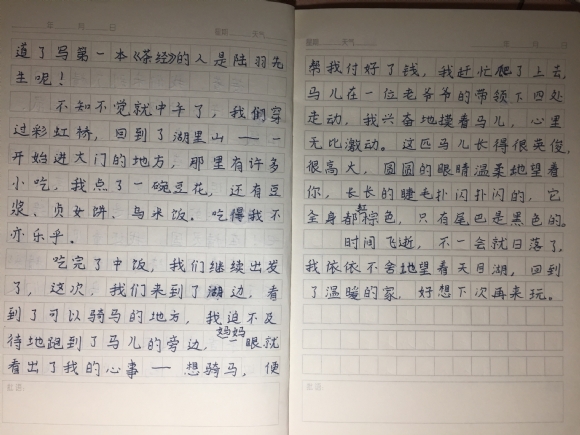 年 月 日 星期 天气
道了写第一本《茶经》的人是陆羽先
生呢！
不知不觉就中午了，我们穿
过彩虹桥，回到了湖里山——一
开始进大门的地方，那里有许多
小吃，我点了一碗豆花，还有豆
浆、贞女饼、乌米饭。吃得我不
亦乐乎。
吃完了中饭，我们继续出发
了，这次，我们来到了湖边，看
到了可以骑马的地方，我迫不及
待地跑到了马儿的旁边，妈妈一眼就
看出了我的心事——想骑马，便
批语：
星期 天气 年 月 日
帮我付好了钱，我赶忙爬了上去，
马儿在一位老爷爷的带领下四处
走动，我兴奋地摸着马儿，心里
无比激动。这匹马儿长得很英俊，
很高大，圆圆的眼睛温柔地望着
你，长长的睫毛扑闪扑闪的，它
全身都是棕色，只有尾巴是黑色的。
时间飞逝，不一会就日落了，
我依依不舍地望着天目湖，回到
了温暖的家，好想下次再来玩。
批语：